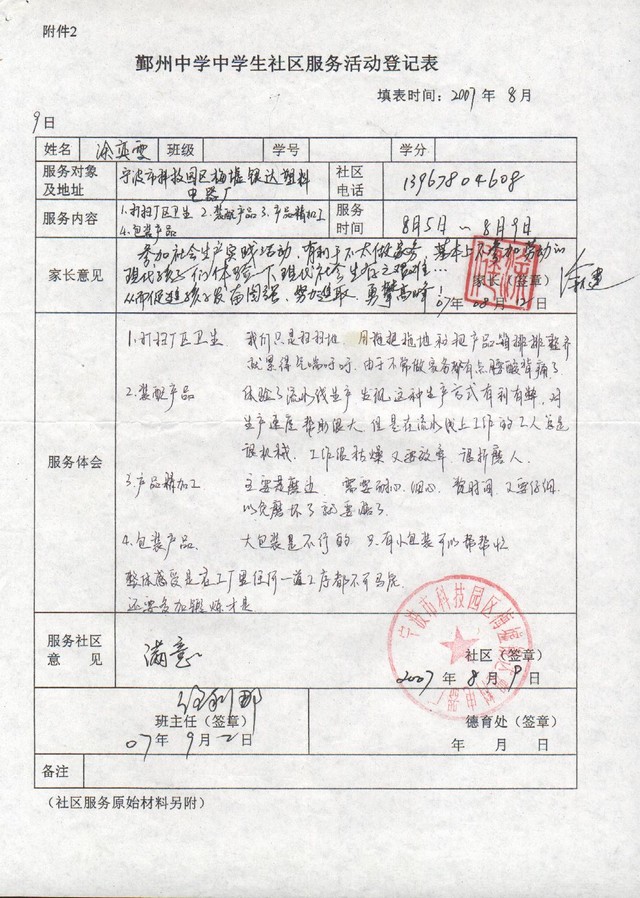 附件2
鄞州中学中学生社区服务活动登记表
填表时间：2007 年 8 月
9 日
姓名 涂奕雯 班级 学号 学分
服务对象及地址 宁波市科技园区梅墟银达塑料电器厂 社区电话 13967804608
服务内容 1.打扫厂区卫生 2.装配产品 3.产品精加工 4.包装产品 服务时间 8月5日～8月9日
家长意见
参加社会生产实践活动，有利于不太做家务、基本上不参加劳动的
现代孩子们体验一下现代社会生存之艰难…
从而促进孩子发奋图强、努力进取、勇攀高峰！
家长（签章）
07 年 08 月 12 日
服务体会
1.打扫厂区卫生 我们只是扫扫地 用拖把拖地和把产品箱排排整齐
就累得气喘吁吁. 由于不常做家务都有点腰酸背痛了
2.装配产品 体验了流水线生产 发现 这种生产方式有利有弊, 对
生产速度帮助很大 但是在流水线上工作的工人总是
很机械. 工作很枯燥 又要效率 很折磨人.
3.产品精加工 主要是磨边 需要耐心.细心. 费时间 又要仔细
以免磨坏了就要赔了.
4.包装产品 大包装是不行的 只有小包装可以帮帮忙
整体感受是在工厂里任何一道工序都不可马虎
还要多加锻炼才是
服务社区意 见 满意
社区（签章）
2007 年 8 月 9 日
宁波市科技园区梅墟银达塑料电器厂
班主任（签章）
07 年 9 月 2 日
德育处（签章）
年 月 日
备注
（社区服务原始材料另附）